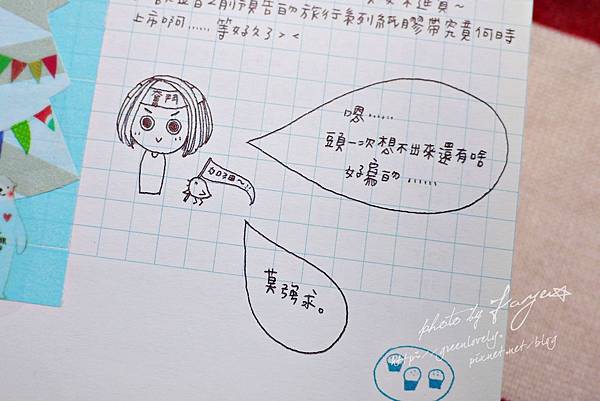 之前預告的旅行系列紙膠帶究竟何時
上市啊……等好久了> <
奮鬥
嗯……
頭一次想不出來還有啥
好寫的……
加油~!!
莫強求。
photo by Kaye
http://greenlovely.
pixnet.net/blog